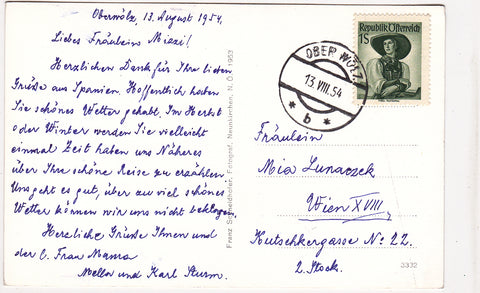 Oberwölz, 13. August 1954.
Liebes Fräulein Miazi!
Herzlichen Dank für Ihre lieben
Grüße aus Spanien. Hoffentlich haben
Sie schönes Wetter gehabt. Im Herbst
oder Winter werden Sie vielleicht
einmal Zeit haben uns Näheres
über Ihre schöne Reise zu erzählen.
Uns geht es gut, über zu viel schönes
Wetter können wir uns nicht beklagen.
Herzliche Grüße Ihnen und
der l. Frau Mama
Mella und Karl Sturm.
Franz Fotograf, Neunkirchen, N. Ö. 1953
OBER WÖLZ
13.VIII.54
* b *
Republik Österreich
1S
Fräulein
Mia Lunaczek
Wien XVIII,
Kutschkergasse No 22.
2. Stock.
3332